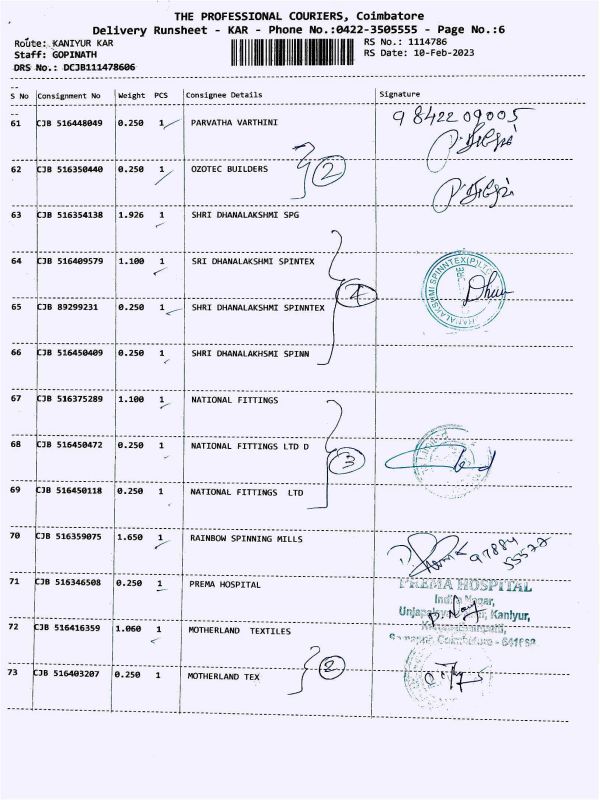 THE PROFESSIONAL COURIERS, Coimbatore
Delivery Runsheet - KAR - Phone No.:0422-3505555 - Page No.:6
Route: KANIYUR KAR RS No.: 1114786
Staff: GOPINATH RS Date: 10-Feb-2023
DRS No.: DCJB111478606
S No Consignment No Weight PCS Consignee Details Signature
61 CJB 516448049 0.250 1 PARVATHA VARTHINI 9842209005
62 CJB 516350440 0.250 1 OZOTEC BUILDERS 2
63 CJB 516354138 1.926 1 SHRI DHANALAKSHMI SPG
64 CJB 516409579 1.100 1 SRI DHANALAKSHMI SPINTEX
65 CJB 89299231 0.250 1 SHRI DHANALAKSHMI SPINNTEX 4
66 CJB 516450409 0.250 1 SHRI DHANALAKHSMI SPINN
67 CJB 516375289 1.100 1 NATIONAL FITTINGS
68 CJB 516450472 0.250 1 NATIONAL FITTINGS LTD D 3
69 CJB 516450118 0.250 1 NATIONAL FITTINGS LTD
70 CJB 516359075 1.650 1 RAINBOW SPINNING MILLS
71 CJB 516346508 0.250 1 PREMA HOSPITAL PREMA HOSPITAL
72 CJB 516416359 1.060 1 MOTHERLAND TEXTILES
73 CJB 516403207 0.250 1 MOTHERLAND TEX 2